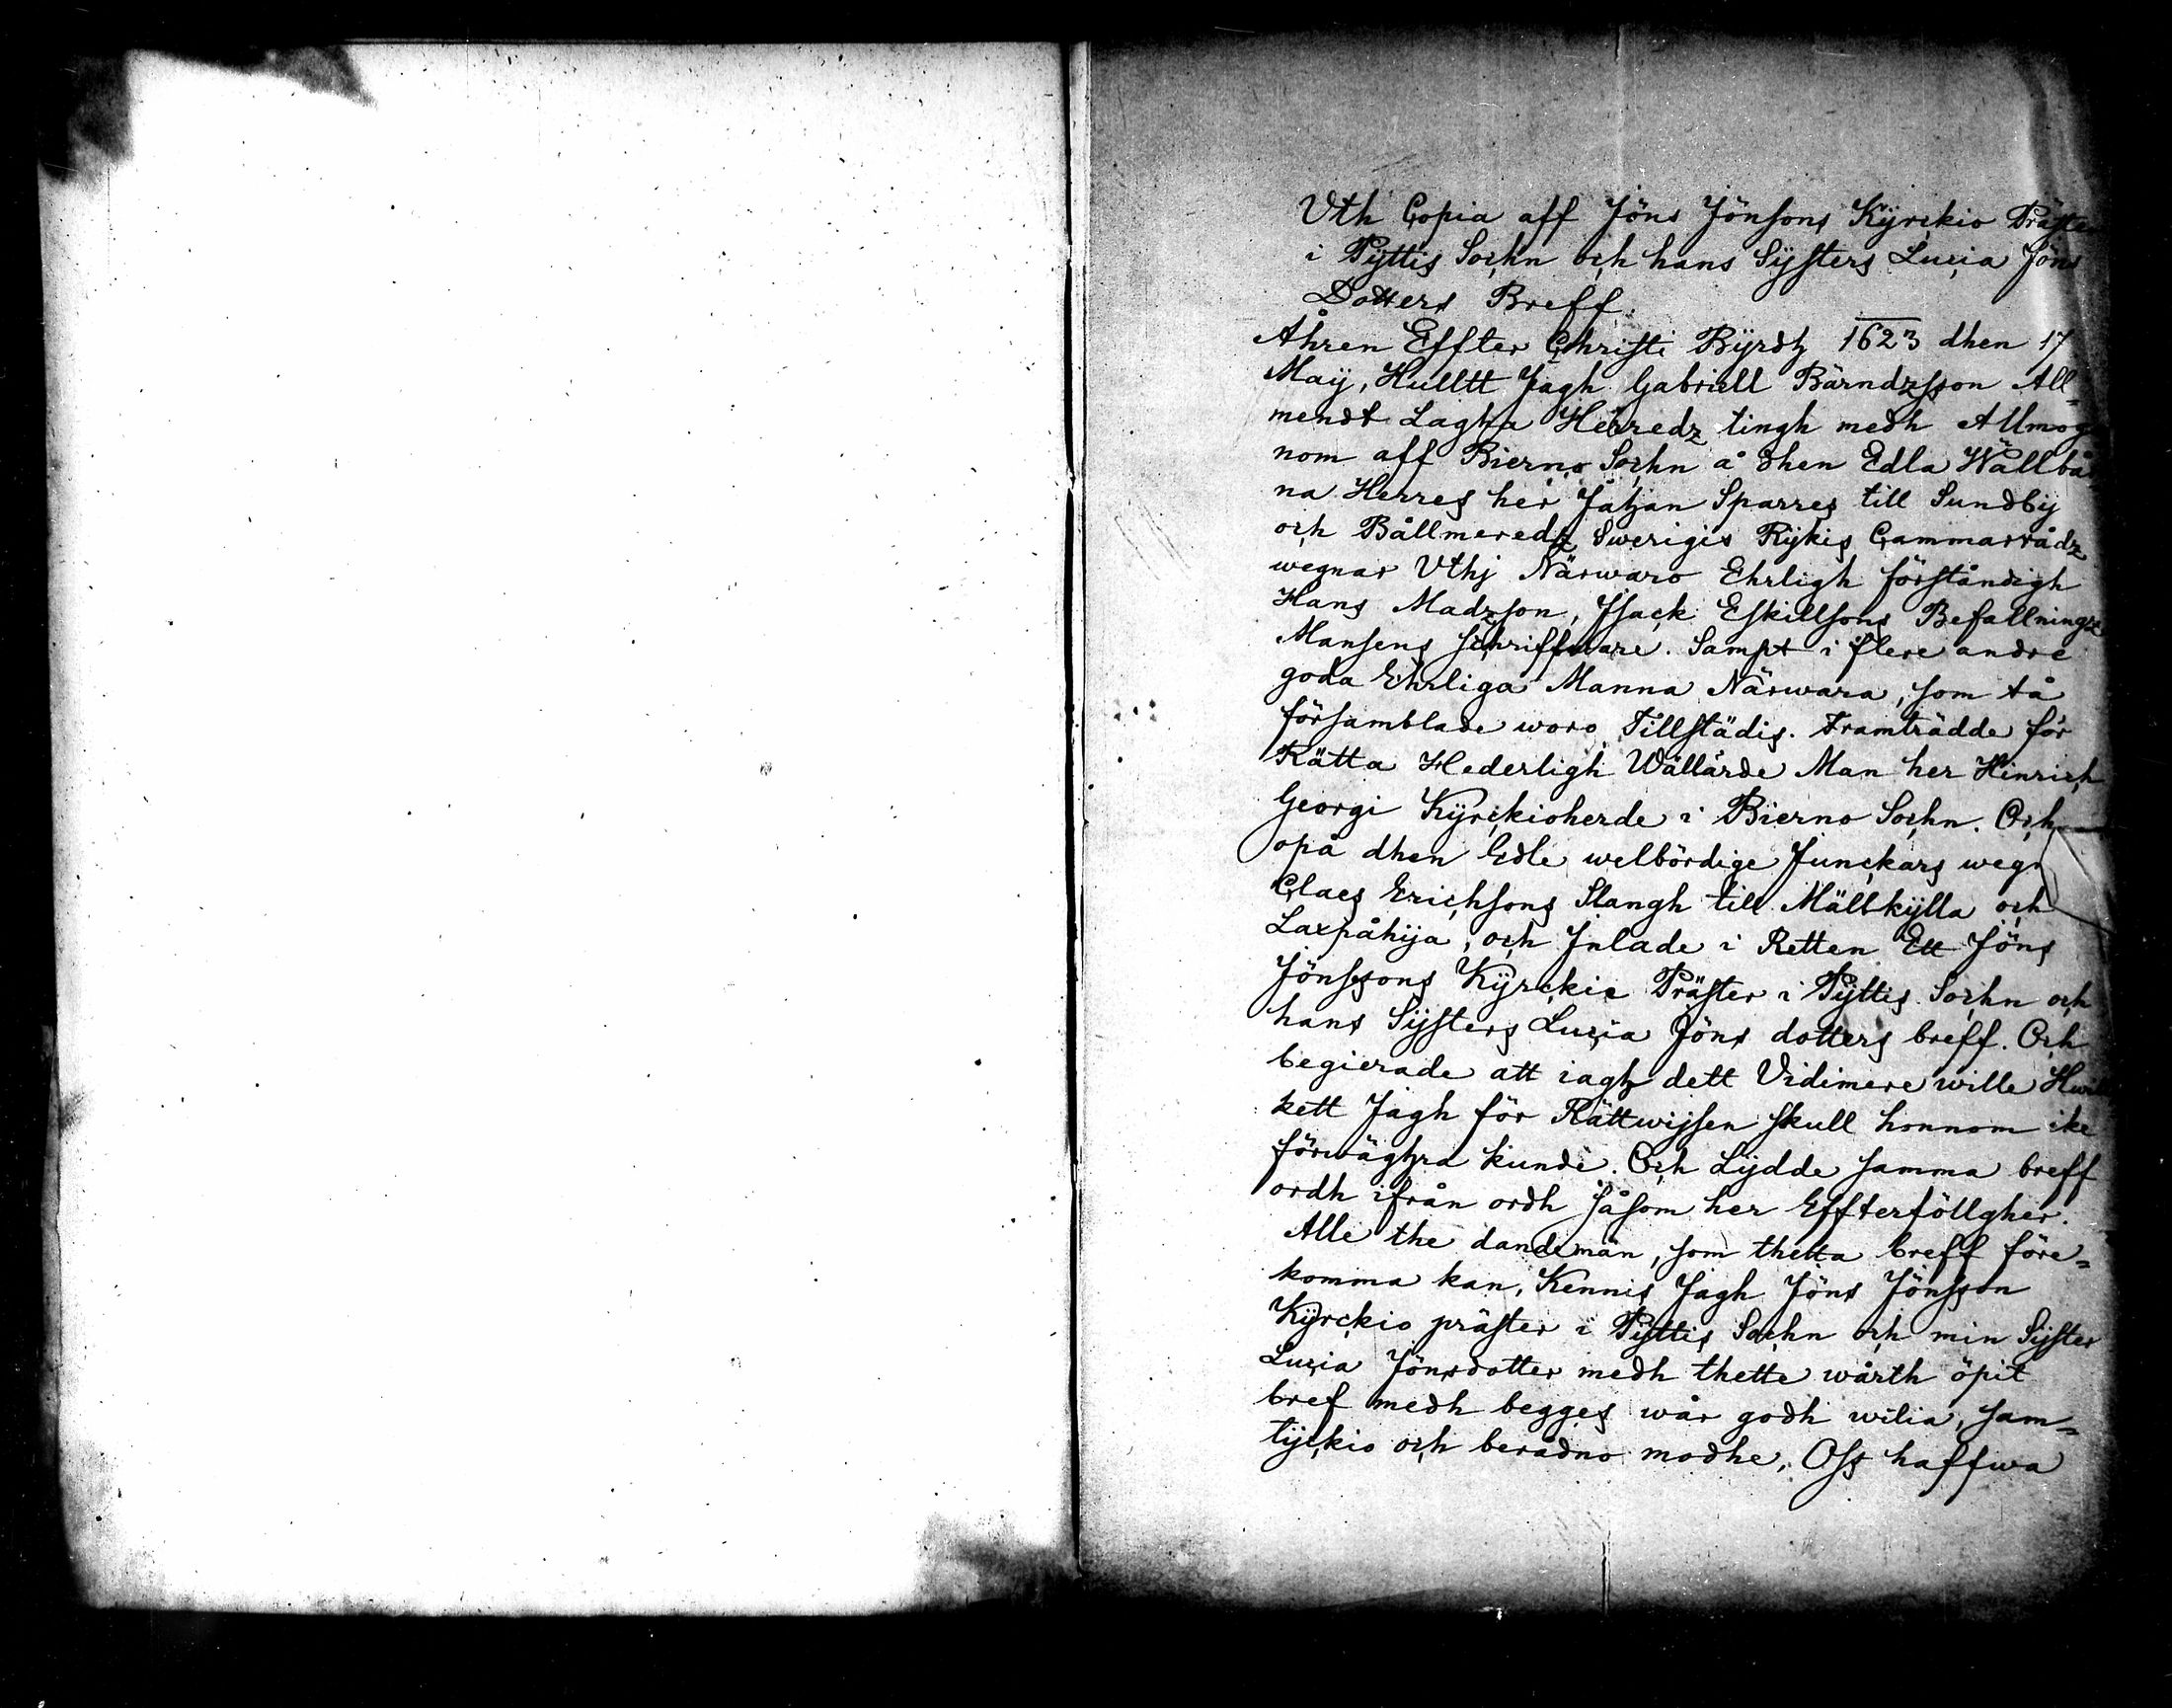 Vth Copia aff Jöns Jönsons Kÿrckio Präster
i Pÿttis Sochn och hans Sÿsters Lucia Jöns
Dotters Breff.
Åhren Effter Christi Bÿrdh 1623 dhen 17
Maÿ, Hulltt Jagh Gabriell Bärndzsson All-
mendt Lagha Herredz tingh medh Allmoge
nom aff Bierno Sochn å dhen Edla Wällbå
na Herres her Jahan Sparres till Sundbÿ
och Bållmeredz Swerigis Rijkis Cammarrådz
wegnar Vthj Närwaro Ehrligh förståndigh
Hans Madzson, Jsack Eskillsons Befallningz
Mansens schriffware. Sampt i flere andre
goda Ehrliga Manna Närwara, som tå
församblade woro Tillstädis. Framträdde för
Rätta Hederligh Wällärde Man her Hinrich
Georgi Kÿrckioherde i Bierno Sochn. Och
opå dhen Edle welbördige Junckars wegn
Claes Erichsons Slangh till Mällkÿlla och
Laxpåhija, och Jnlade i Retten Ett Jöns
Jönssons Kÿrckie Präster i Pÿttis Sochn och
hans Sÿsters Lucia Jöns dotters breff. Och
begierade att iagh dett Vidimere wille Hwil
kett Jagh för Rättwijsen skull honnom ike
förwäghra kunde. Och Lÿdde samma breff
ordh ifrån ordh såsom her Effterföllgher.
Alle the dandemän, som thetta breff före-
komma kan, Kennis Jagh Jöns Jönsson
Kÿrckio präster i Pÿttis Sochn och min Sÿster
Lucia Jönsdotter medh thette wårth öpit
bref medh begges wår godh wilia, sam-
tÿckio och berådno modhe, Oss haffwa